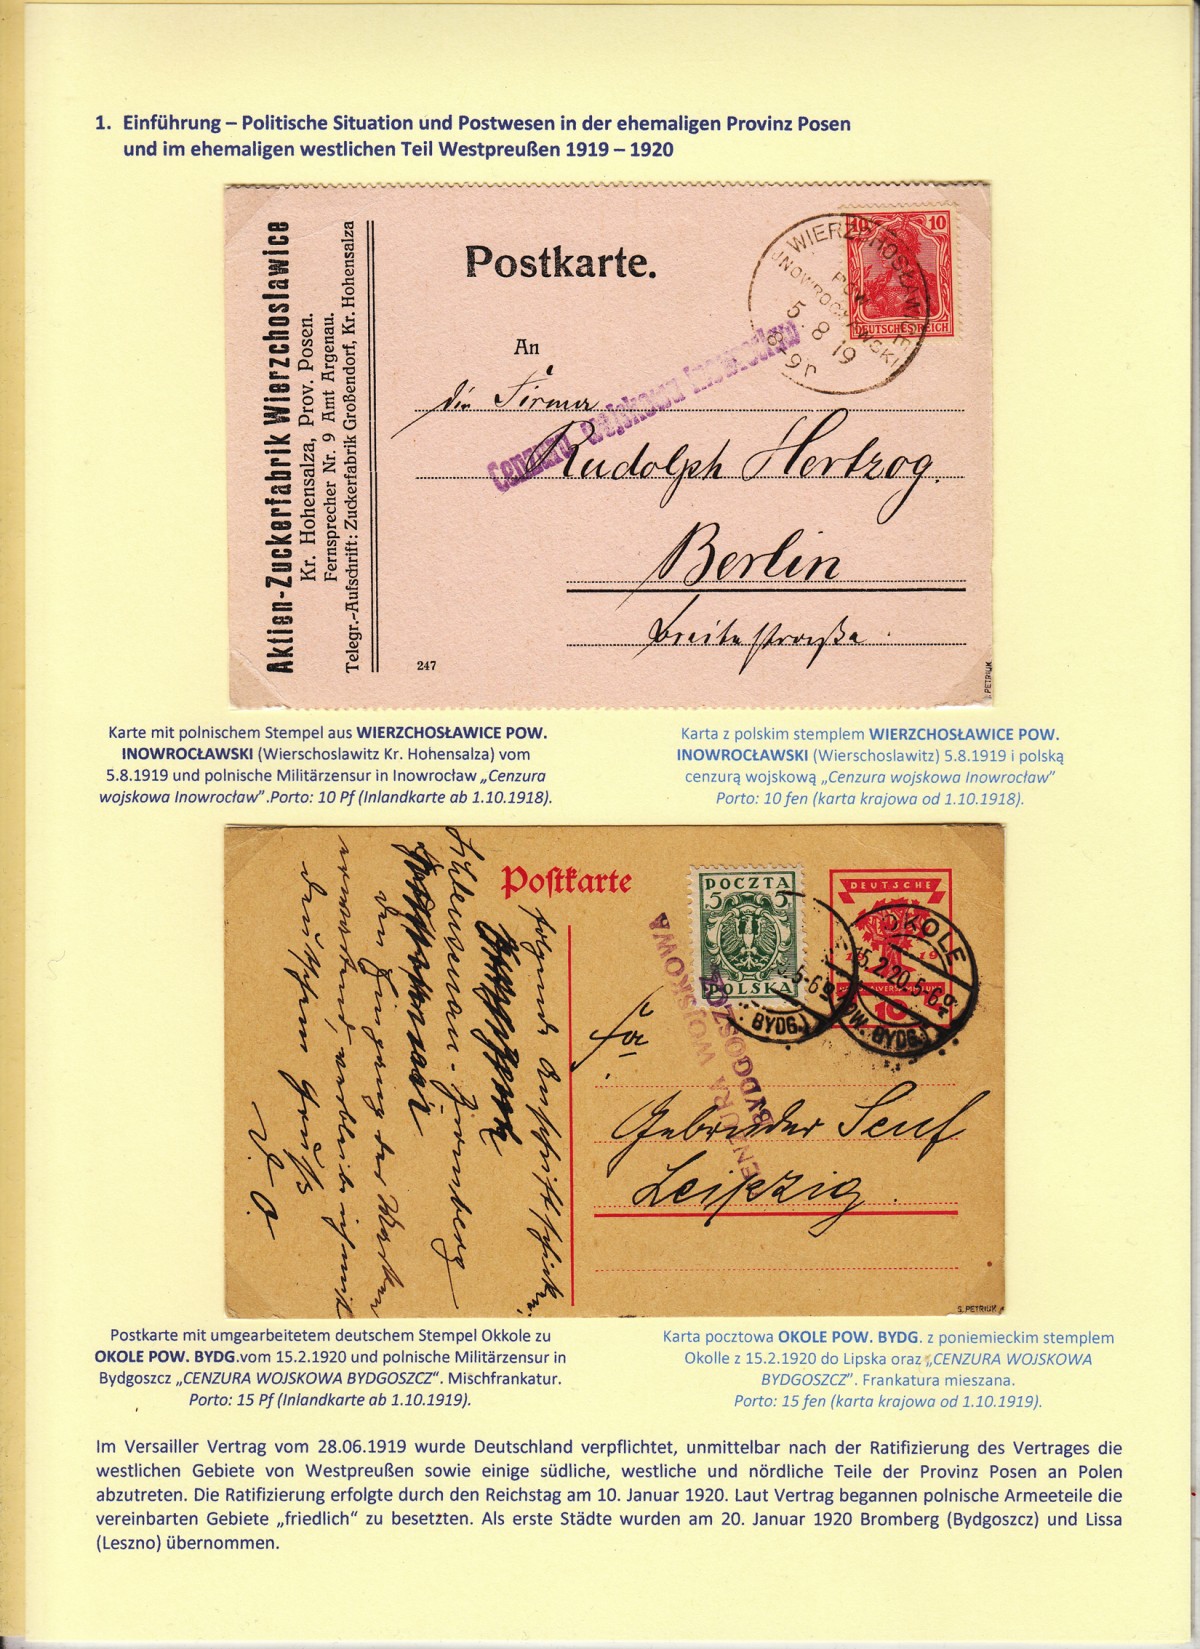 1. Einführung – Politische Situation und Postwesen in der ehemaligen Provinz Posen
und im ehemaligen westlichen Teil Westpreußen 1919 – 1920
Aktien-Zuckerfabrik Wierzchoslawice
Kr. Hohensalza, Prov. Posen.
Fernsprecher Nr. 9 Amt Argenau.
Telegr.-Aufschrift: Zuckerfabrik Großendorf, Kr. Hohensalza
Postkarte.
WIERZCHOSŁAWICE
POW.
INOWROCŁAWSKI
5.8 19
8-9N
10 10
DEUTSCHES REICH
An
die Firma
Cenzura wojskowa Inowrocław
Rudolph Hertzog.
Berlin
Breitestraße.
247
PETRIUK
Karte mit polnischem Stempel aus WIERZCHOSŁAWICE POW.
INOWROCŁAWSKI (Wierschoslawitz Kr. Hohensalza) vom
5.8.1919 und polnische Militärzensur in Inowrocław „Cenzura
wojskowa Inowrocław”.Porto: 10 Pf (Inlandkarte ab 1.10.1918).
Karta z polskim stemplem WIERZCHOSŁAWICE POW.
INOWROCŁAWSKI (Wierschoslawitz) 5.8.1919 i polską
cenzurą wojskową „Cenzura wojskowa Inowrocław”
Porto: 10 fen (karta krajowa od 1.10.1918).
Postkarte
POCZTA
5 5
POLSKA
DEUTSCHE
19 19
10
OKOLE
15.2.20.5-6N
(POW. BYDG.)
5-6N
. BYDG.)
CENZURA WOJSKOWA
BYDGOSZCZ
Fa
Gebrüder Senf
Leipzig.
folgende Anschrift
den Eingang der Marken
erwartend, verbleibe ich mit
deutschem Gruß
S. PETRIUK
Postkarte mit umgearbeitetem deutschem Stempel Okkole zu
OKOLE POW. BYDG.vom 15.2.1920 und polnische Militärzensur in
Bydgoszcz „CENZURA WOJSKOWA BYDGOSZCZ“. Mischfrankatur.
Porto: 15 Pf (Inlandkarte ab 1.10.1919).
Karta pocztowa OKOLE POW. BYDG. z poniemieckim stemplem
Okolle z 15.2.1920 do Lipska oraz „CENZURA WOJSKOWA
BYDGOSZCZ”. Frankatura mieszana.
Porto: 15 fen (karta krajowa od 1.10.1919).
Im Versailler Vertrag vom 28.06.1919 wurde Deutschland verpflichtet, unmittelbar nach der Ratifizierung des Vertrages die
westlichen Gebiete von Westpreußen sowie einige südliche, westliche und nördliche Teile der Provinz Posen an Polen
abzutreten. Die Ratifizierung erfolgte durch den Reichstag am 10. Januar 1920. Laut Vertrag begannen polnische Armeeteile die
vereinbarten Gebiete „friedlich“ zu besetzten. Als erste Städte wurden am 20. Januar 1920 Bromberg (Bydgoszcz) und Lissa
(Leszno) übernommen.